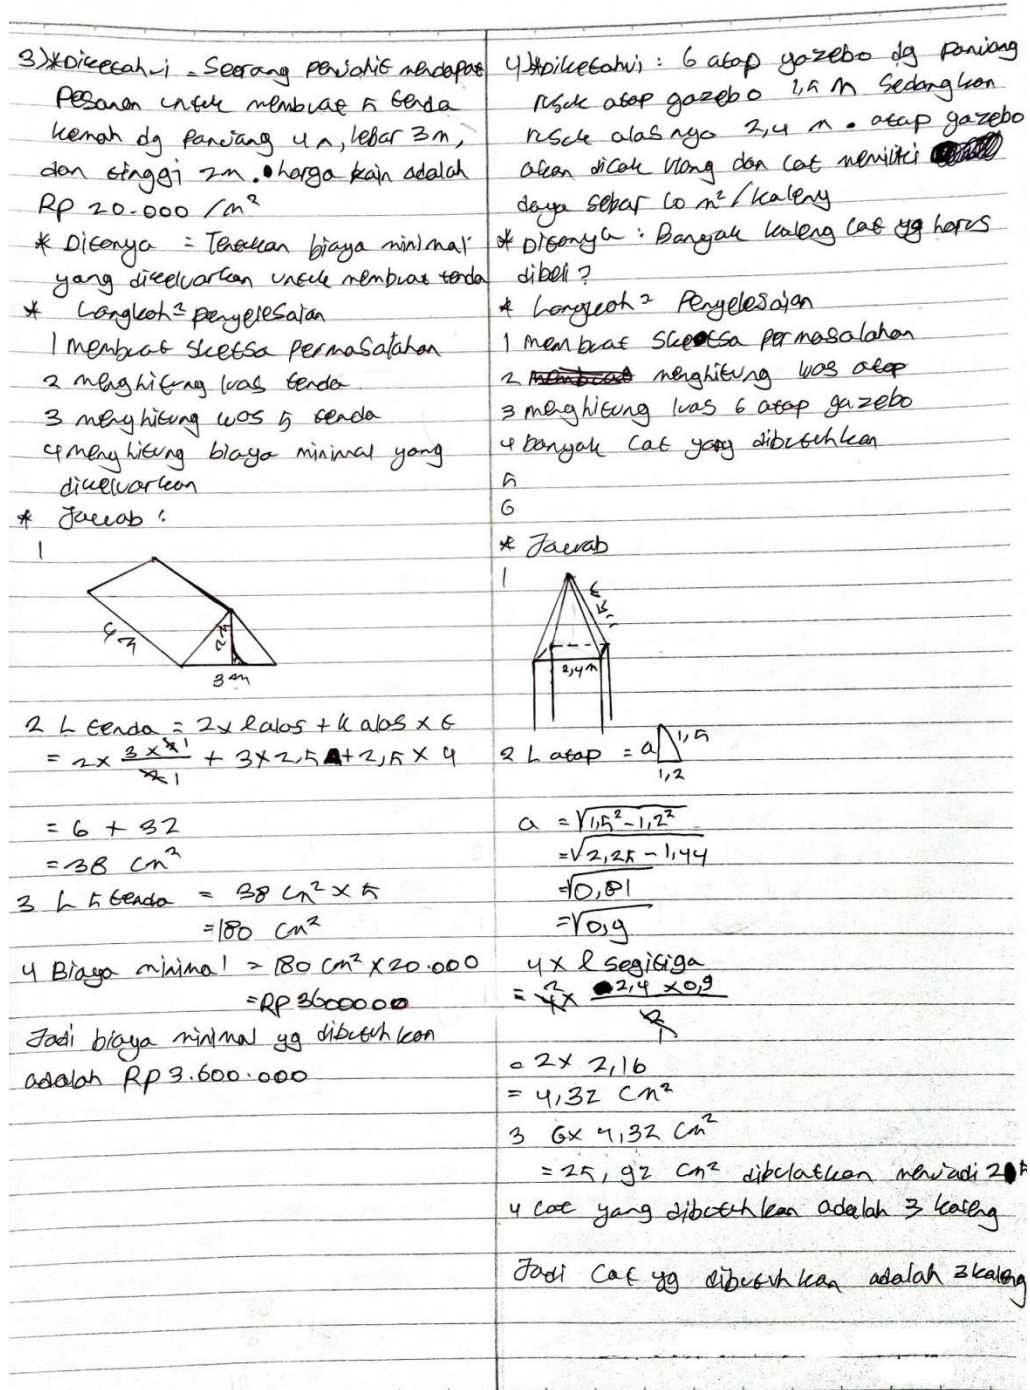 3) * Diketahui = Seorang penjahit mendapat
pesanan untuk membuat 5 tenda
kemah dg panjang 4 m, lebar 3m,
dan tinggi 2m. harga kain adalah
Rp 20.000 /m²
* Ditanya = Tentukan biaya minimal
yang dikeluarkan untuk membuat tenda
* Langkah² penyelesaian
1 membuat sketsa permasalahan
2 menghitung luas tenda
3 menghitung luas 5 tenda
4 menghitung biaya minimal yang
dikeluarkan
* Jawab :
1
4 m
2 m
3 m
2 L tenda = 2 x l alas + k alas x t
= 2 x 3 x 2 1 / 2 1 + 3 x 2,5 + 2,5 x 4
= 6 + 32
= 38 cm²
3 L 5 tenda = 38 cm² x 5
= 180 cm²
4 Biaya minimal = 180 cm² x 20.000
= Rp 3600000
Jadi biaya minimal yg dibutuhkan
adalah Rp 3.600.000
4) * Diketahui : 6 atap gazebo dg panjang
rusuk atap gazebo 1,5 m sedangkan
rusuk alasnya 2,4 m. atap gazebo
akan dicat ulang dan cat memiliki
daya sebar 10 m² / kaleng
* Ditanya : Banyak kaleng cat yg harus
dibeli ?
* Langkah² Penyelesaian
1 membuat sketsa permasalahan
2 membuat menghitung luas atap
3 menghitung luas 6 atap gazebo
4 banyak cat yang dibutuhkan
5
6
* Jawab
1
1,5 m
2,4 m
2 L atap = a 1,5
1,2
a = √1,5² - 1,2²
= √2,25 - 1,44
= √0,81
= √0,9
4 x l segitiga
= 4 2 x 2,4 x 0,9
2 1
= 2 x 2,16
= 4,32 cm²
3 6 x 4,32 cm²
= 25,92 cm² dibulatkan menjadi 25
4 cat yang dibutuhkan adalah 3 kaleng
Jadi cat yg dibutuhkan adalah 3 kaleng